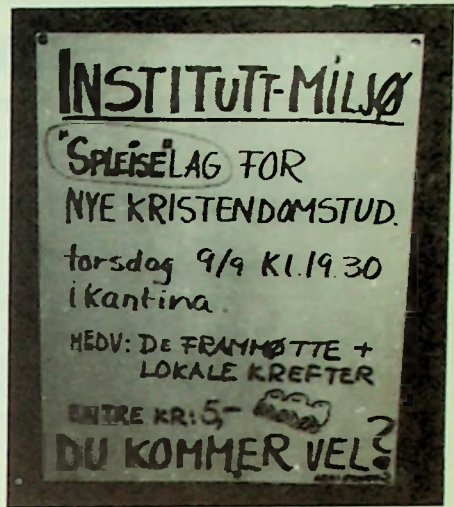 INSTITUTT-MILJØ
"SPLEISE"LAG FOR
NYE KRISTENDOMSTUD.
torsdag 9/9 Kl. 19.30
i kantina.
MEDV: DE FRAMMØTTE +
LOKALE KREFTER
ENTRE KR: 5,-
DU KOMMER VEL?